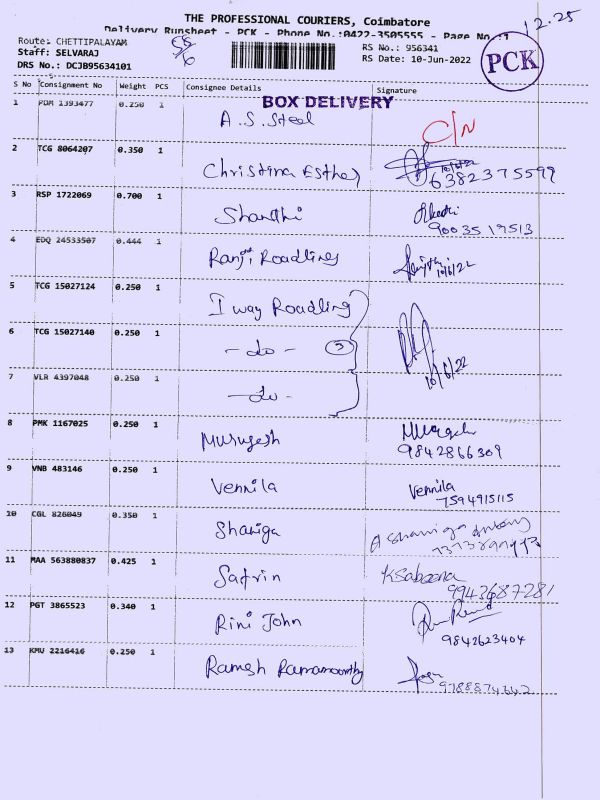 THE PROFESSIONAL COURIERS, Coimbatore
12.25
Delivery Runsheet - PCK - Phone No.:0422-3505555 - Page No.:1
Route: CHETTIPALAYAM
RS No.: 956341
Staff: SELVARAJ
RS Date: 10-Jun-2022
DRS No.: DCJB95634101
PCK
S No Consignment No Weight PCS Consignee Details Signature
BOX DELIVERY
1 PDM 1393477 0.250 1 A.S. Steel C/N
2 TCG 8064207 0.350 1 Christina Esther 10/6/22
6382375599
3 RSP 1722069 0.700 1 Shanthi
9003519513
4 EDQ 24533507 0.444 1 Ranjit Roadlines 10/6/22
5 TCG 15027124 0.250 1 I way Roadling
6 TCG 15027140 0.250 1 - do - 3
10/6/22
7 VLR 4397048 0.250 1 - do -
8 PMK 1167025 0.250 1 Murugesh
9842866309
9 VNB 483146 0.250 1 Vennila Vennila
7594915115
10 CGL 826049 0.350 1 Shaniga
11 MAA 563880837 0.425 1 Safrin K Sabeena
9943687281
12 PGT 3865523 0.340 1 Rini John
9842623404
13 KMU 2216416 0.250 1 Ramesh Ramamoorthy